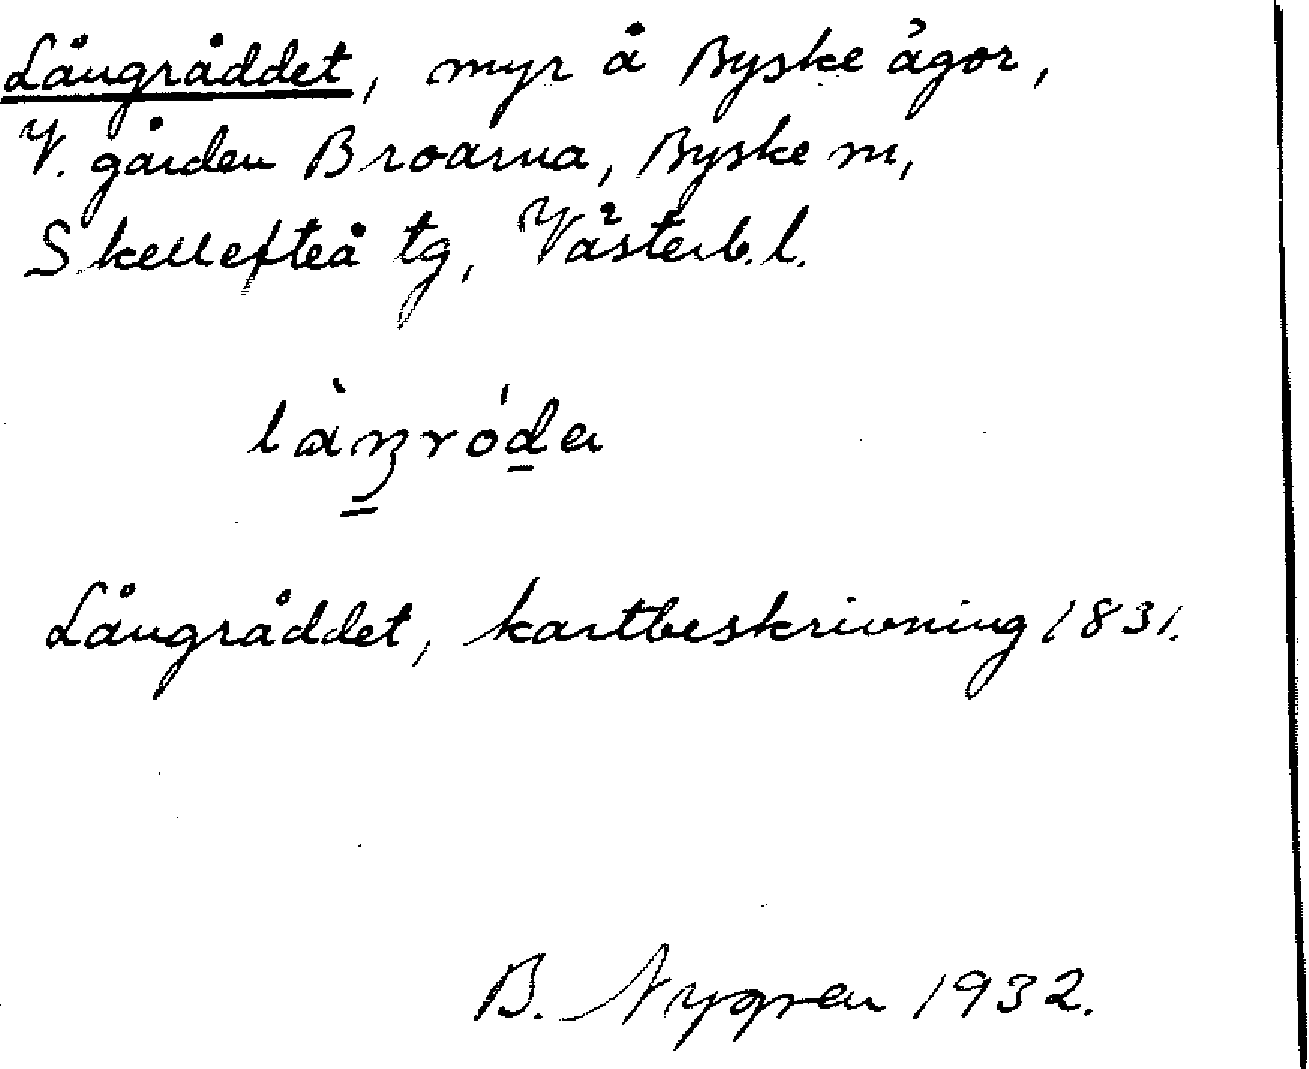 Långråddet, myr å Byske ägor,
V. gården Broarna, Byske sn,
Skellefteå tg, Västerb. l.
Långråddet, kartbeskrivning 1831.
B. Nygren 1932.